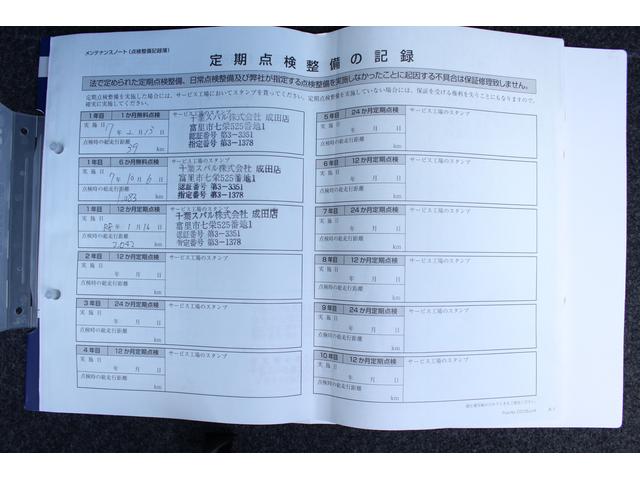 メンテナンスノート(点検整備記録簿)
定期点検整備の記録
法で定められた定期点検整備、日常点検整備及び弊社が指定する点検整備を実施しなかったことに起因する不具合は保証修理致しません。
定期点検整備を実施した場合には、サービス工場においてスタンプを貰ってください。定期点検整備を実施していない場合には、保証を受ける権利を失うことにもなりますので、
確実に実施してください。
1年目 1か月無料点検 サービス工場のスタンプ
実施日 7年2月13日
点検時の総走行距離
39 km
千葉スバル株式会社 成田店
富里市七栄525番地1
認証番号 第3-3351
指定番号 第3-1378
1年目 6か月無料点検 サービス工場のスタンプ
実施日
7年10月6日
点検時の総走行距離
km
千葉スバル株式会社 成田店
富里市七栄525番地1
認証番号 第3-3351
指定番号 第3-1378
1年目 12か月定期点検 サービス工場のスタンプ
実施日
年1月16日
点検時の総走行距離
2,092 km
千葉スバル株式会社 成田店
富里市七栄525番地1
認証番号 第3-3351
指定番号 第3-1378
2年目 12か月定期点検 サービス工場のスタンプ
実施日
年 月 日
点検時の総走行距離
km
3年目 24か月定期点検 サービス工場のスタンプ
実施日
年 月 日
点検時の総走行距離
km
4年目 12か月定期点検 サービス工場のスタンプ
実施日
年 月 日
点検時の総走行距離
km
5年目 24か月定期点検 サービス工場のスタンプ
実施日
年 月 日
点検時の総走行距離
km
6年目 12か月定期点検 サービス工場のスタンプ
実施日
年 月 日
点検時の総走行距離
km
7年目 24か月定期点検 サービス工場のスタンプ
実施日
年 月 日
点検時の総走行距離
km
8年目 12か月定期点検 サービス工場のスタンプ
実施日
年 月 日
点検時の総走行距離
km
9年目 24か月定期点検 サービス工場のスタンプ
実施日
年 月 日
点検時の総走行距離
km
10年目 12か月定期点検 サービス工場のスタンプ
実施日
年 月 日
点検時の総走行距離
km